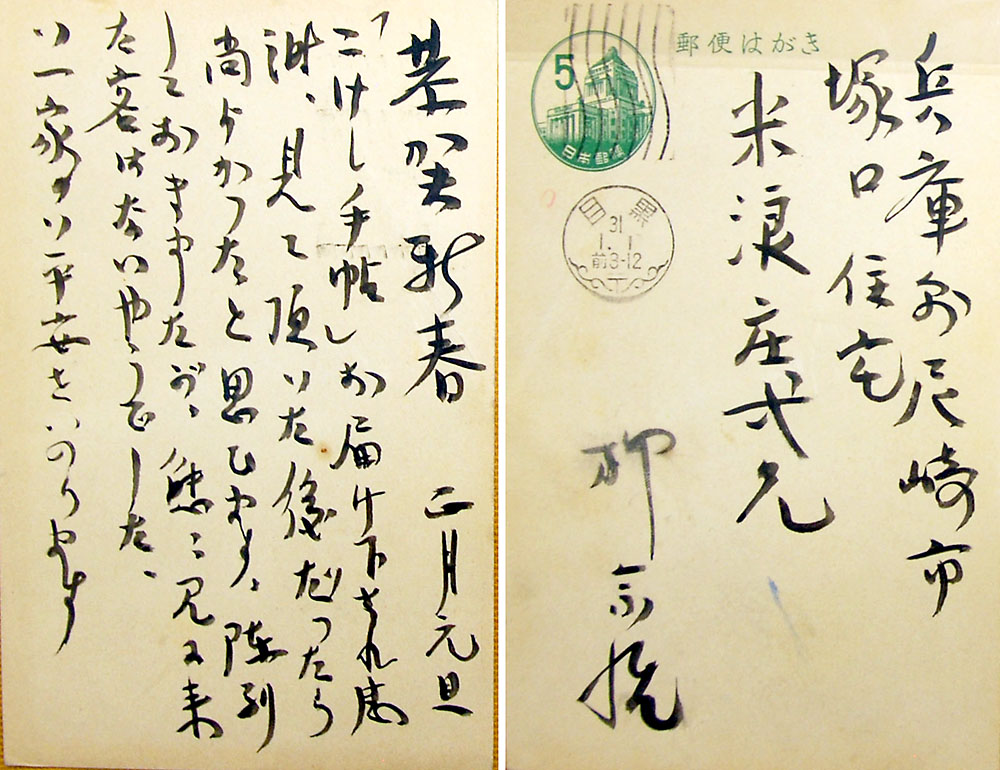 恭賀新春 正月元旦
「こけし手帖」お届け下され感
謝、見て頂いた後だったら
尚よかったと思ひます、陳列
しておきましたが、態々見に来
た客はないやうでした、
御一家の御平安をいのります
郵便はがき
5
日本郵便
目黒
31
1.1
前8-12
兵庫県尼崎市
塚口住宅
米浪庄弌兄
柳宗悦